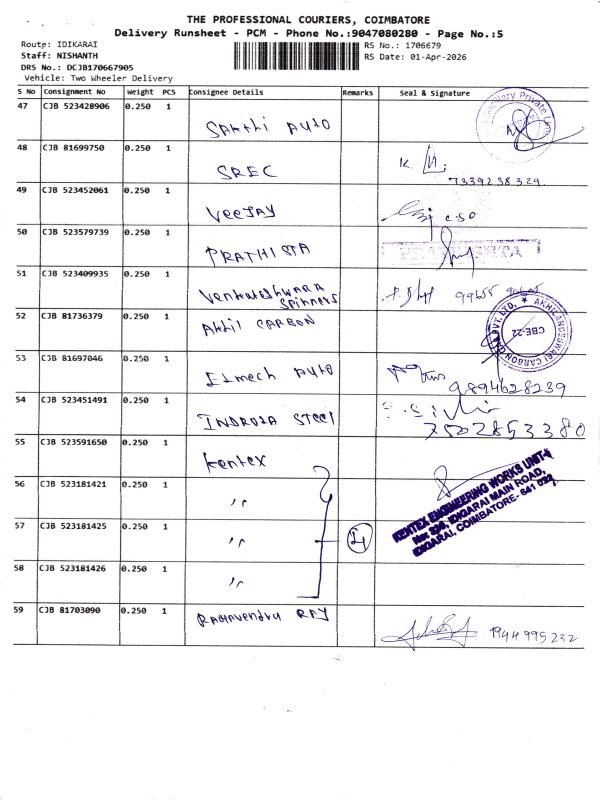 THE PROFESSIONAL COURIERS, COIMBATORE
Delivery Runsheet - PCM - Phone No.:9047080280 - Page No.:5
Route: IDIKARAI
RS No.: 1706679
Staff: NISHANTH
RS Date: 01-Apr-2026
DRS No.: DCJB170667905
Vehicle: Two Wheeler Delivery
S No Consignment No Weight PCS Consignee Details Remarks Seal & Signature
47 CJB 523428906 0.250 1 SAKthi AUTO
48 CJB 81699750 0.250 1 SREC 7339238329
49 CJB 523452061 0.250 1 VEEJAY CSO
50 CJB 523579739 0.250 1 PRATHISTA
51 CJB 523409935 0.250 1 Venkateshwara Spinners 99655
52 CJB 81736379 0.250 1 Akhil CARBON AKHILANDESWARI CARBON PVT. LTD. CBE-22
53 CJB 81697046 0.250 1 Elmech AUTO 9894628239
54 CJB 523451491 0.250 1 INDROLA STEEL 7502853380
55 CJB 523591650 0.250 1 Kentex
KENTEX ENGINEERING WORKS UNIT-II
EDIGARAI MAIN ROAD,
EDIGARAI, COIMBATORE- 641 022.
56 CJB 523181421 0.250 1 "
57 CJB 523181425 0.250 1 " 4
58 CJB 523181426 0.250 1 "
59 CJB 81703090 0.250 1 Raghavendra RAJ 1944995232